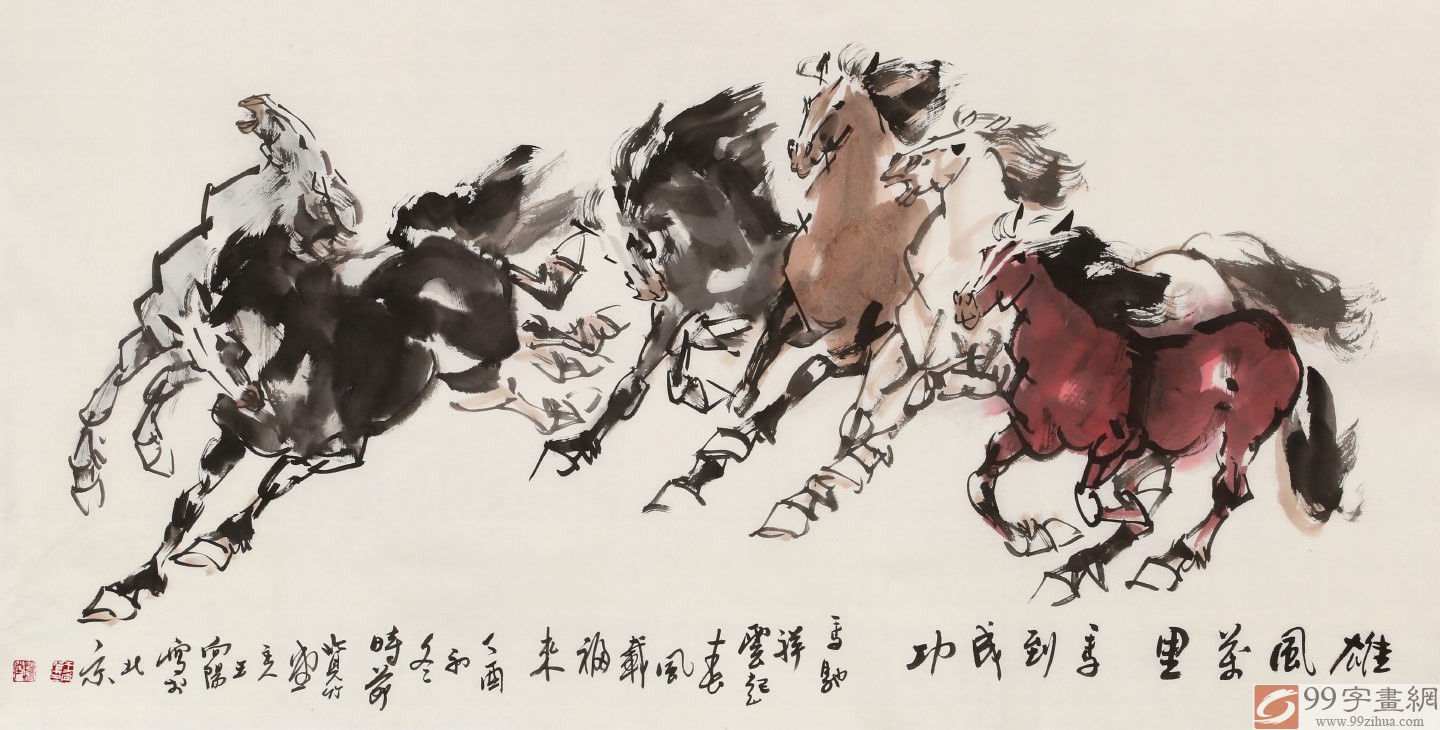 雄風萬里馬到成功
馬馳祥雲起春風載福來
乙酉初冬時節
王向陽寫於北京
99字畫網
www.99zihua.com